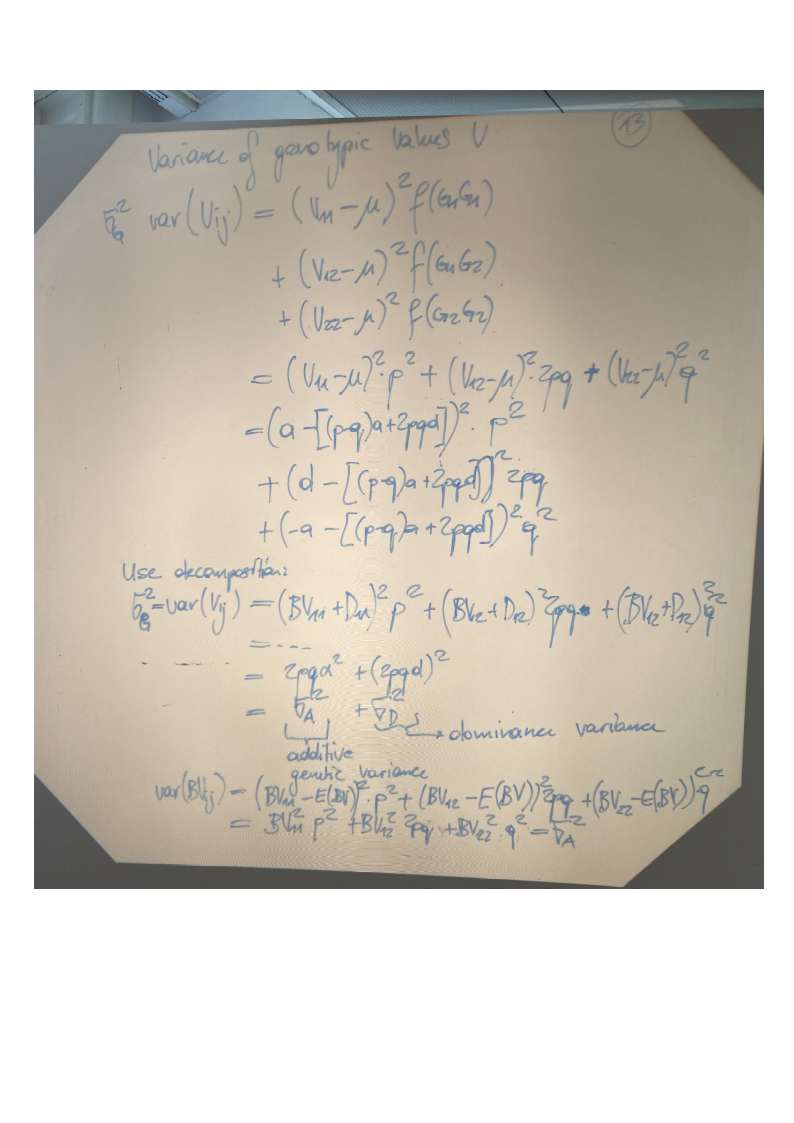 Variance of genotypic values V
13
σ_G^2 var(V_ij) = (V_11 - μ)^2 f(G_1G_1)
+ (V_12 - μ)^2 f(G_1G_2)
+ (V_22 - μ)^2 f(G_2G_2)
= (V_11 - μ)^2 · p^2 + (V_12 - μ)^2 · 2pq + (V_22 - μ)^2 q^2
= (a - [(p-q)a + 2pqd])^2 · p^2
+ (d - [(p-q)a + 2pqd])^2 2pq
+ (-a - [(p-q)a + 2pqd])^2 q^2
Use decomposition:
σ_G^2 = var(V_ij) = (BV_11 + D_11)^2 p^2 + (BV_12 + D_12)^2 2pq + (BV_12 + D_12)^2 q^2
= ...
= 2pqα^2 + (2pqd)^2
= σ_A^2 + σ_D^2
→ dominance variance
additive
genetic variance
var(BV_ij) = (BV_11 - E(BV))^2 · p^2 + (BV_12 - E(BV))^2 2pq + (BV_22 - E(BV))^2 q^2
= BV_11^2 p^2 + BV_12^2 2pq + BV_22^2 · q^2 = σ_A^2